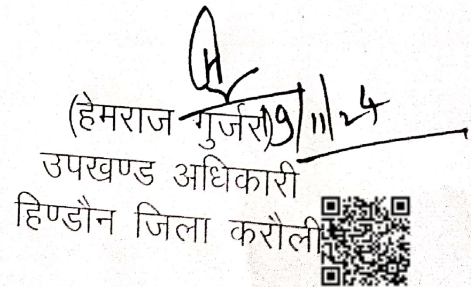 (हेमराज गुर्जर) 9/11/24
उपखण्ड अधिकारी
हिण्डौन जिला करौली